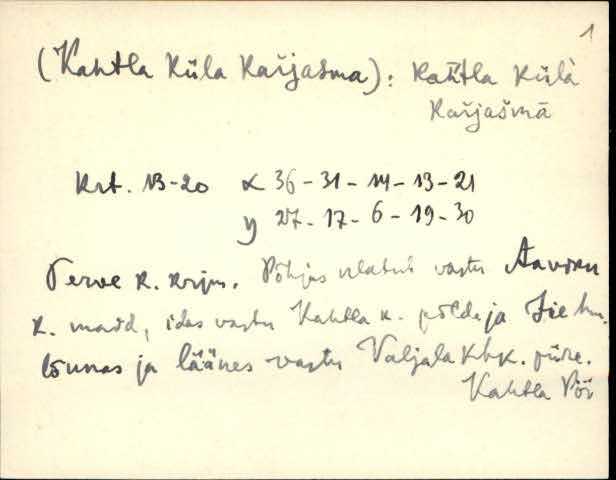 1
(Kahtla küla karjašma): kahtla külà
karjašmā
Krt. 13-20 x 36-31-14-13-21
y 27-17-6-19-30
Terve k. krjm. Põhjas ulatub vastu Aaviku
k. maid, idas vastu Kahtla k. põlde ja
lõunas ja läänes vastu Valjala khk. piire.
Kahtla Pöi